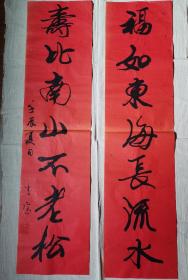 福如東海長流水
壽比南山不老松
壬辰夏日